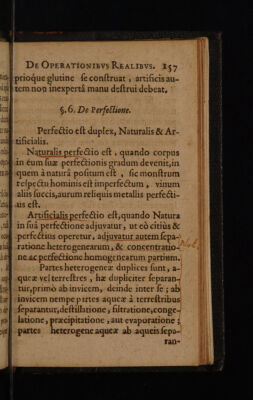 DE OPERATIONIBVS REALIBVS. 157
prioque glutine se construat, artificis au-
tem non inexpertâ manu destrui debeat.
§. 6. De Perfectione.
Perfectio est duplex, Naturalis & Ar-
tificialis.
Naturalis perfectio est, quando corpus
in eum suæ perfectionis gradum devenit, in
quem à naturâ positum est, sic monstrum
respectu hominis est imperfectum, vinum
aliis succis, aurum reliquis metallis perfecti-
us est.
Artificialis perfectio est, quando Natura
in suâ perfectione adjuvatur, ut eò citiùs &
perfectius operetur, adjuvatur autem sepa-
ratione heterogenearum, & concentratio-
ne ac perfectione homogenearum partium.
Partes heterogeneæ duplices sunt, a-
queæ vel terrestres, hæ dupliciter separan-
tur, primo ab invicem, deinde inter se; ab
invicem nempe partes aqueæ à terrestribus
separantur, destillatione, filtratione, conge-
latione, præcipitatione, aut evaporatione;
partes heterogeneæ aqueæ ab aqueis sepa-
ran-